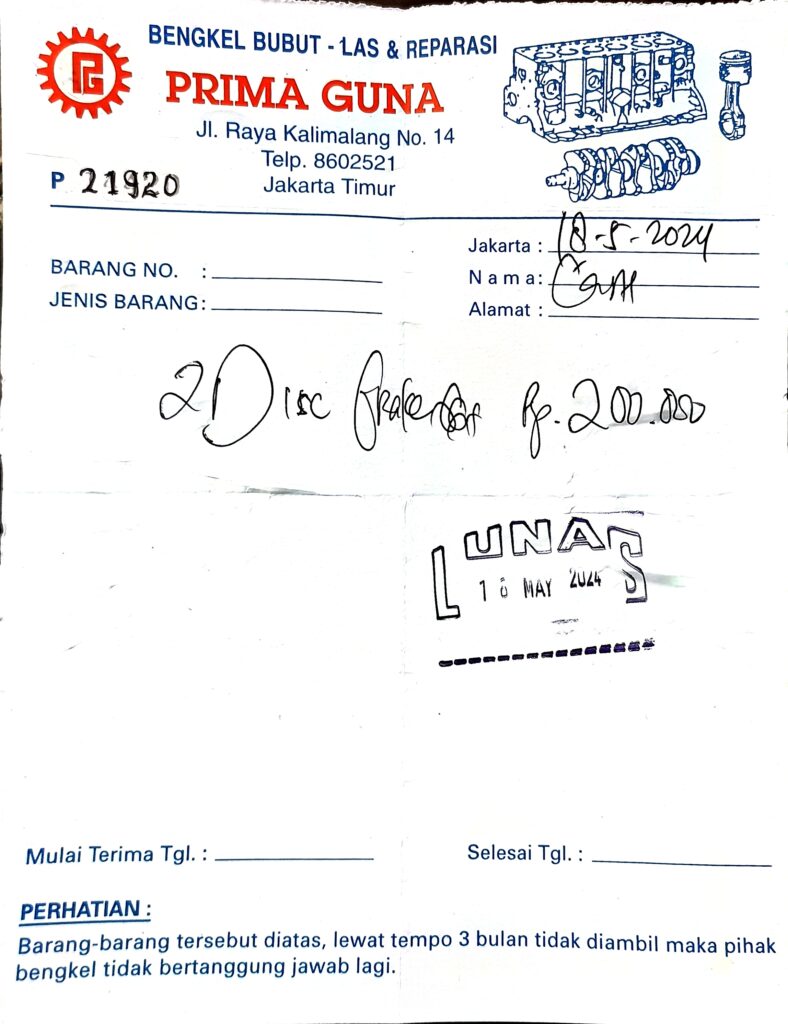 PG
BENGKEL BUBUT - LAS & REPARASI
PRIMA GUNA
Jl. Raya Kalimalang No. 14
Telp. 8602521
Jakarta Timur
P 21920
Jakarta : 18-5-2024
BARANG NO. :
Nama:
JENIS BARANG:
Alamat :
2 Disc Rp. 200.000
LUNAS
18 MAY 2024
Mulai Terima Tgl. :
Selesai Tgl. :
PERHATIAN :
Barang-barang tersebut diatas, lewat tempo 3 bulan tidak diambil maka pihak
bengkel tidak bertanggung jawab lagi.